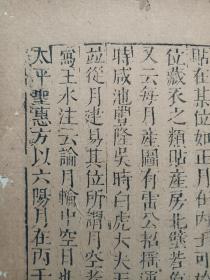 貼在某位如正月在丙子可
位藏衣之類貼産房北壁若
又云每月産圖有雷公招搖運
時咸池豊隆吳時白虎大夫天
竝從月建易其位所謂月空者
寫王水注云論月輪中空日也
太平聖惠方以六陽月在丙壬